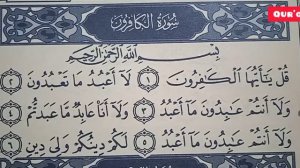 QUR'
سُورَةُ الكَافِرُونَ
بِسْمِ اللَّهِ الرَّحْمَٰنِ الرَّحِيمِ
قُلْ يَا أَيُّهَا الْكَافِرُونَ ١ لَا أَعْبُدُ مَا تَعْبُدُونَ ٢
وَلَا أَنتُمْ عَابِدُونَ مَا أَعْبُدُ ٣ وَلَا أَنَا عَابِدٌ مَّا عَبَدتُّمْ ٤
وَلَا أَنتُمْ عَابِدُونَ مَا أَعْبُدُ ٥ لَكُمْ دِينُكُمْ وَلِيَ دِينِ ٦